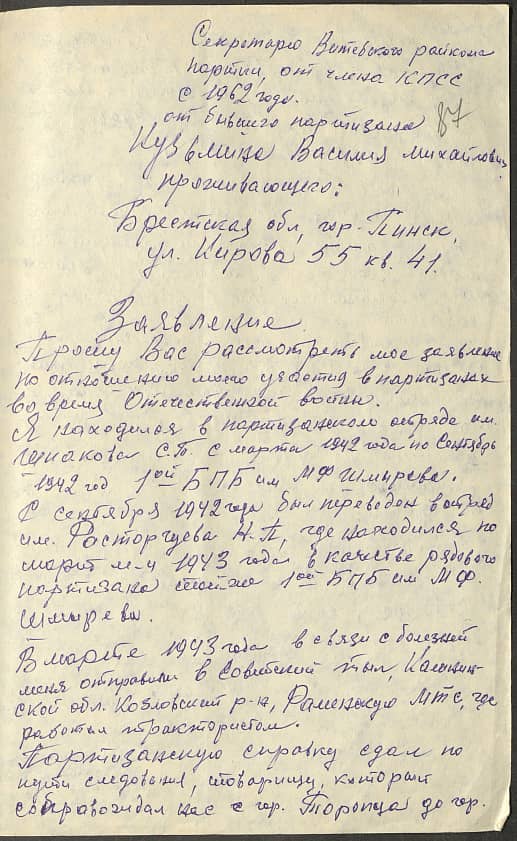 Секретарю Витебского райкома
партии, от члена КПСС
с 1962 года.
от бывшего партизана
87
Кузьмина Василия Михайлович
проживающего:
Брестская обл, гор. Пинск,
ул. Кирова 55 кв. 41.
Заявление
Прошу Вас рассмотреть мое заявление
по отношению моего участия в партизанах
во время Отечественной войны.
Я находился в партизанском отряде им.
С.Т. с марта 1942 года по Сентябрь
1942 год 1ой БПБ им МФ Шмырева.
С сентября 1942 года был переведен в отряд
им. Расторгуева Н.П, где находился по
март м-ц 1943 года в качестве рядового
партизана той-же 1ой БПБ им М.Ф.
Шмырева.
В марте 1943 года в связи с болезнью
меня отправили в Советский тыл, Калинин-
ской обл. Козловский р-н, Раменскую МТС, где
работал трактористом.
Партизанскую справку сдал по
пути следования, товарищу, который
сопровождал нас с гор. Торопца до гор.